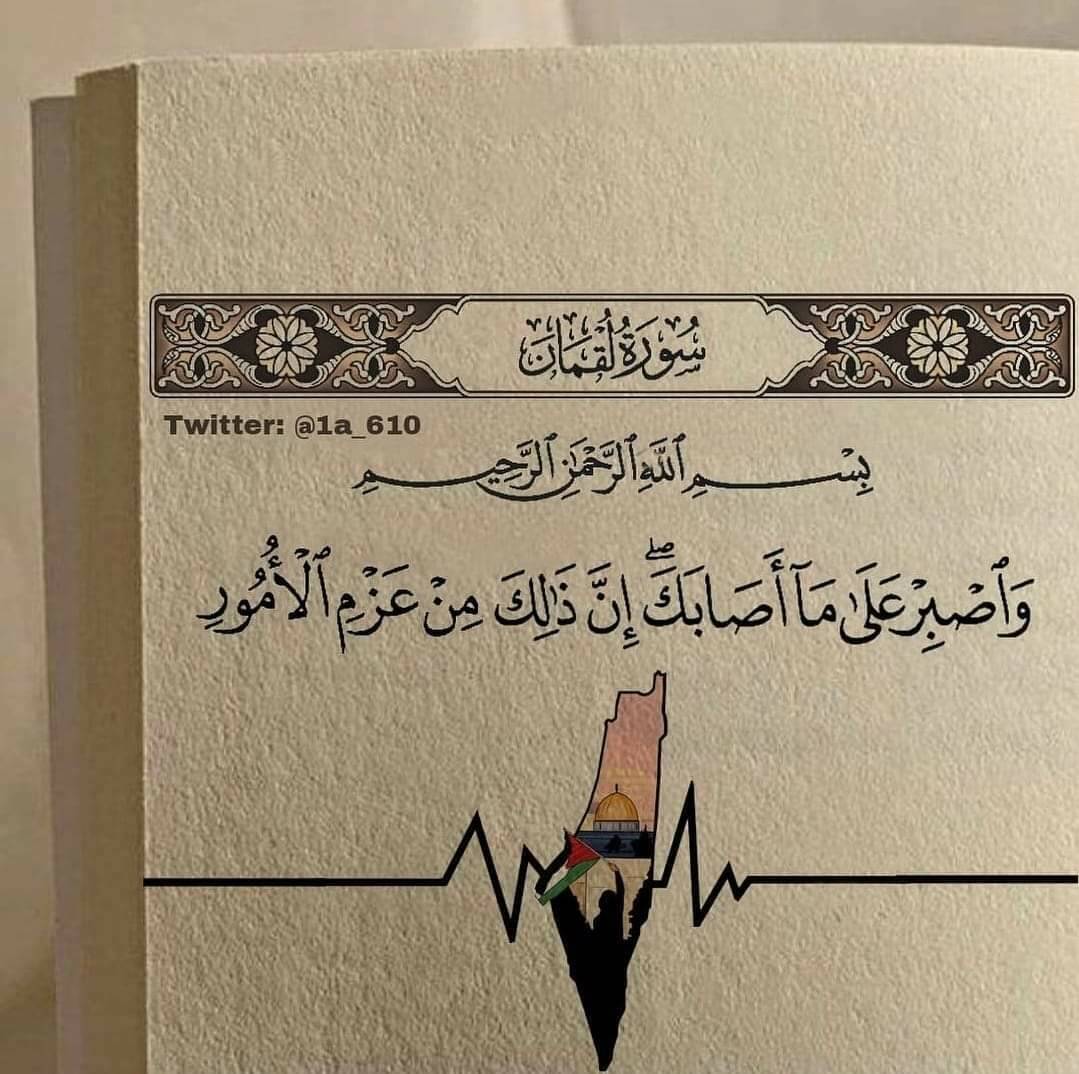 سُورَةُ لُقْمَانَ
Twitter: @1a_610
بِسْمِ ٱللَّهِ ٱلرَّحْمَٰنِ ٱلرَّحِيمِ
وَٱصْبِرْ عَلَىٰ مَآ أَصَابَكَ ۖ إِنَّ ذَٰلِكَ مِنْ عَزْمِ ٱلْأُمُورِ